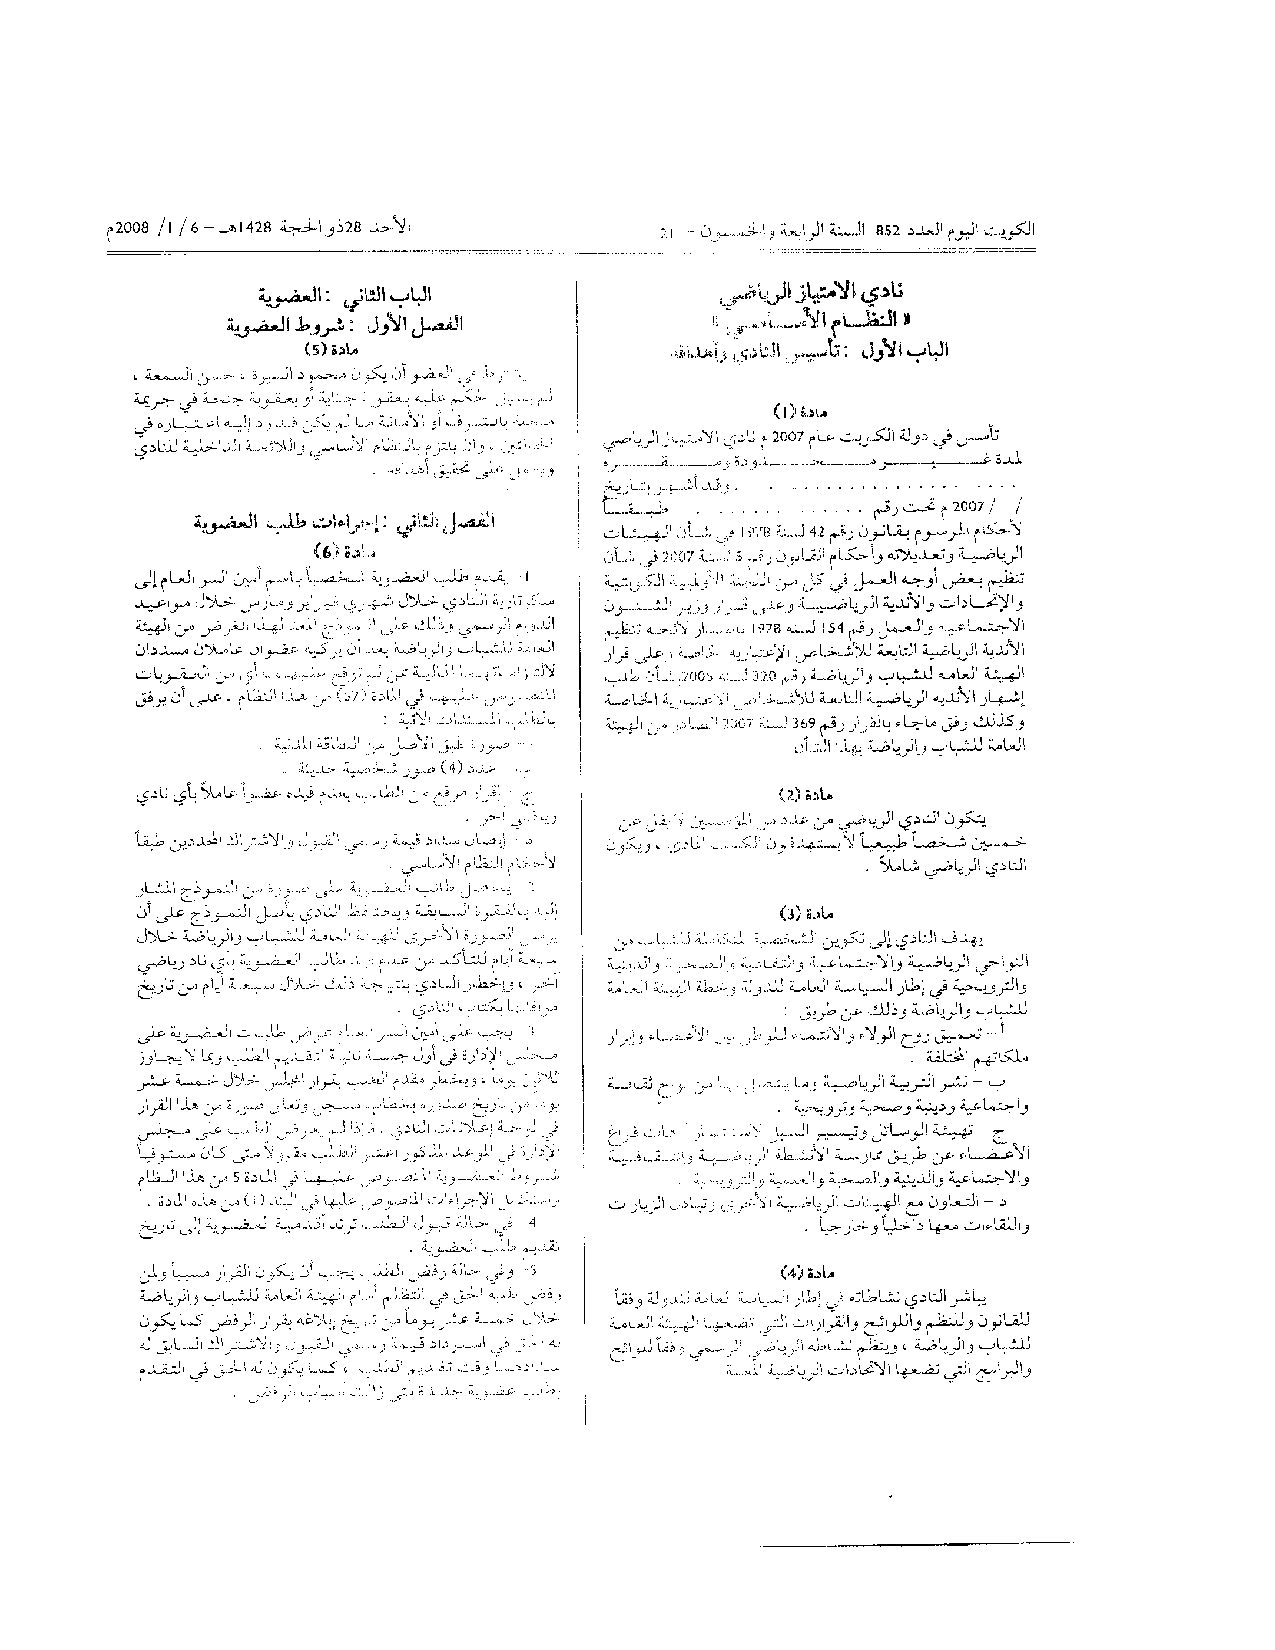 الكويت اليوم العدد 852 السنة الرابعة والخمسون - 21
الأحد 28 ذو الحجة 1428هـ - 6 / 1/ 2008م
نادي الامتياز الرياضي
" النظام الأساسي "
الباب الأول : تأسيس النادي وأهدافه
مادة (1)
تأسس في دولة الكويت عام 2007 م نادي الامتياز الرياضي
لمدة غير محدودة ومقره
. . . . . . . . . . . . . . . . وقد أشهر بتاريخ
/ / 2007 م تحت رقم . . . . . . . . . . . . طبقاً
لأحكام المرسوم بقانون رقم 42 لسنة 1978 في شأن الهيئات
الرياضية وتعديلاته وأحكام القانون رقم 5 لسنة 2007 في شأن
تنظيم بعض أوجه العمل في كل من اللجنة الأولمبية الكويتية
والإتحادات والأندية الرياضية وعلى قرار وزير الشئون
الاجتماعية والعمل رقم 154 لسنة 1978 بإصدار لائحة تنظيم
الأندية الرياضية التابعة للأشخاص الاعتبارية الخاصة وعلى قرار
الهيئة العامة للشباب والرياضة رقم 320 لسنة 2005 بشأن طلب
إشهار الأندية الرياضية التابعة للأشخاص الاعتبارية الخاصة
وكذلك وفق ماجاء بالقرار رقم 369 لسنة 2007 الصادر من الهيئة
العامة للشباب والرياضة بهذا الشأن
مادة (2)
يتكون النادي الرياضي من عدد من المؤسسين لا يقل عن
خمسين شخصاً طبيعياً لا يستهدفون الكسب المادي ، ويكون
النادي الرياضي شاملاً .
مادة (3)
يهدف النادي إلى تكوين الشخصية المتكاملة للشباب من
النواحي الرياضية والاجتماعية والثقافية والصحية والدينية
والترويحية في إطار السياسة العامة للدولة وخطة الهيئة العامة
للشباب والرياضة وذلك عن طريق :
أ - تعميق روح الولاء والانتماء للوطن بين الأعضاء وإبراز
ملكاتهم المختلفة .
ب - نشر التربية الرياضية وما يتصل بها من نواحي ثقافية
واجتماعية ودينية وصحية وترويحية .
ج - تهيئة الوسائل وتيسير السبل لاستثمار أوقات فراغ
الأعضاء عن طريق ممارسة الأنشطة الرياضية والثقافية
والاجتماعية والدينية والصحية والعلمية والترويحية .
د - التعاون مع الهيئات الرياضية الأخرى وتبادل الزيارات
واللقاءات معها داخلياً وخارجياً .
مادة (4)
يباشر النادي نشاطاته في إطار السياسة العامة للدولة وفقاً
للقانون وللنظم واللوائح والقرارات التي تضعها الهيئة العامة
للشباب والرياضة ، وينظم نشاطه الرياضي الرسمي وفقاً للوائح
والبرامج التي تضعها الاتحادات الرياضية المعنية
الباب الثاني : العضوية
الفصل الأول : شروط العضوية
مادة (5)
يشترط في العضو أن يكون محمود السيرة ، حسن السمعة ،
لم يسبق الحكم عليه بعقوبة جناية أو بعقوبة جنحة في جريمة
مخلة بالشرف أو الأمانة ما لم يكن قد رد إليه اعتباره في
الحالتين ، وأن يلتزم بالنظام الأساسي واللائحة الداخلية للنادي
ويعمل على تحقيق أهدافه .
الفصل الثاني : إجراءات طلب العضوية
مادة (6)
1- يقدم طلب العضوية شخصياً باسم أمين السر العام إلى
سكرتارية النادي خلال شهري فبراير ومارس خلال مواعيد
الدوام الرسمي وذلك على النموذج المعد لهذا الغرض من الهيئة
العامة للشباب والرياضة بعد أن يزكيه عضوان عاملان مسددان
لالتزاماتهما المالية عن لم توقع عليهما أي من العقوبات
المنصوص عليها في المادة (57) من هذا النظام ، على أن يرفق
بالطلب المستندات الآتية :
أ - صورة طبق الأصل من البطاقة المدنية .
ب - عدد (4) صور شخصية حديثة .
ج - إقرار موقع من الطالب بعدم قيده عضواً عاملاً بأي نادي
رياضي آخر .
د - إيصال سداد قيمة رسمي القبول والاشتراك المحددين طبقاً
لأحكام النظام الأساسي .
2- يحصل طالب العضوية على صورة من النموذج المشار
إليه بالفقرة السابقة ويحتفظ النادي بأصل النموذج على أن
يرسل الصورة الأخرى للهيئة العامة للشباب والرياضة خلال
سبعة أيام للتأكد من عدم قيد طالب العضوية بأي ناد رياضي
آخر ، وإخطار النادي بنتيجة ذلك خلال سبعة أيام من تاريخ
موافاتها بكتاب النادي .
3- يجب على أمين السر العام عرض طلبات العضوية على
مجلس الإدارة في أول جلسة تالية لتقديم الطلب وبما لا يجاوز
ثلاثين يوماً ، ويخطر مقدم الطلب بقرار المجلس خلال خمسة عشر
يوماً من تاريخ صدوره بخطاب مسجل وتعلن صورة من هذا القرار
في لوحة إعلانات النادي ، فإذا لم يعرض الطلب على مجلس
الإدارة في الموعد المذكور اعتبر الطلب مقبولاً متى كان مستوفياً
شروط العضوية المنصوص عليها في المادة 5 من هذا النظام
واستكمل الإجراءات المنصوص عليها في البند (1) من هذه المادة .
4- في حالة قبول الطلب ترتد أقدمية العضوية إلى تاريخ
تقديم طلب العضوية .
5- وفي حالة رفض الطلب ، يجب أن يكون القرار مسبباً ولمن
رفض طلبه الحق في التظلم أمام الهيئة العامة للشباب والرياضة
خلال خمسة عشر يوماً من تاريخ إبلاغه بقرار الرفض كما يكون
له الحق في استرداد قيمة رسمي القبول والاشتراك السابق له
سدادهما وقت تقديم الطلب ، كما يكون له الحق في التقدم
بطلب عضوية جديدة متى زالت أسباب الرفض .